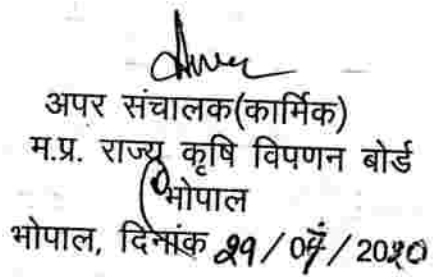 अपर संचालक(कार्मिक)
म.प्र. राज्य कृषि विपणन बोर्ड
भोपाल
भोपाल, दिनांक 29 / 07 / 2020